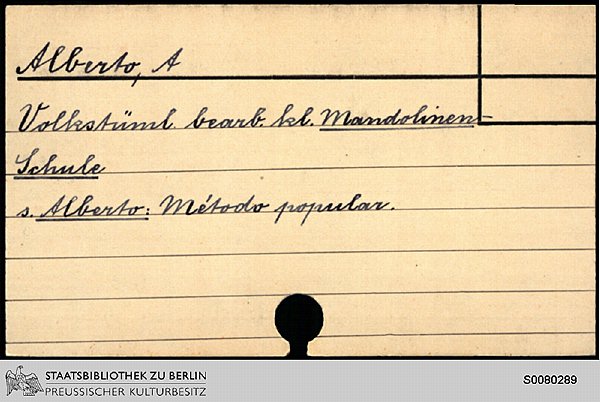 Alberto, A
Volkstüml. bearb. kl. Mandolinen-
Schule
s. Alberto: Método popular.
STAATSBIBLIOTHEK ZU BERLIN
PREUSSISCHER KULTURBESITZ
S0080289